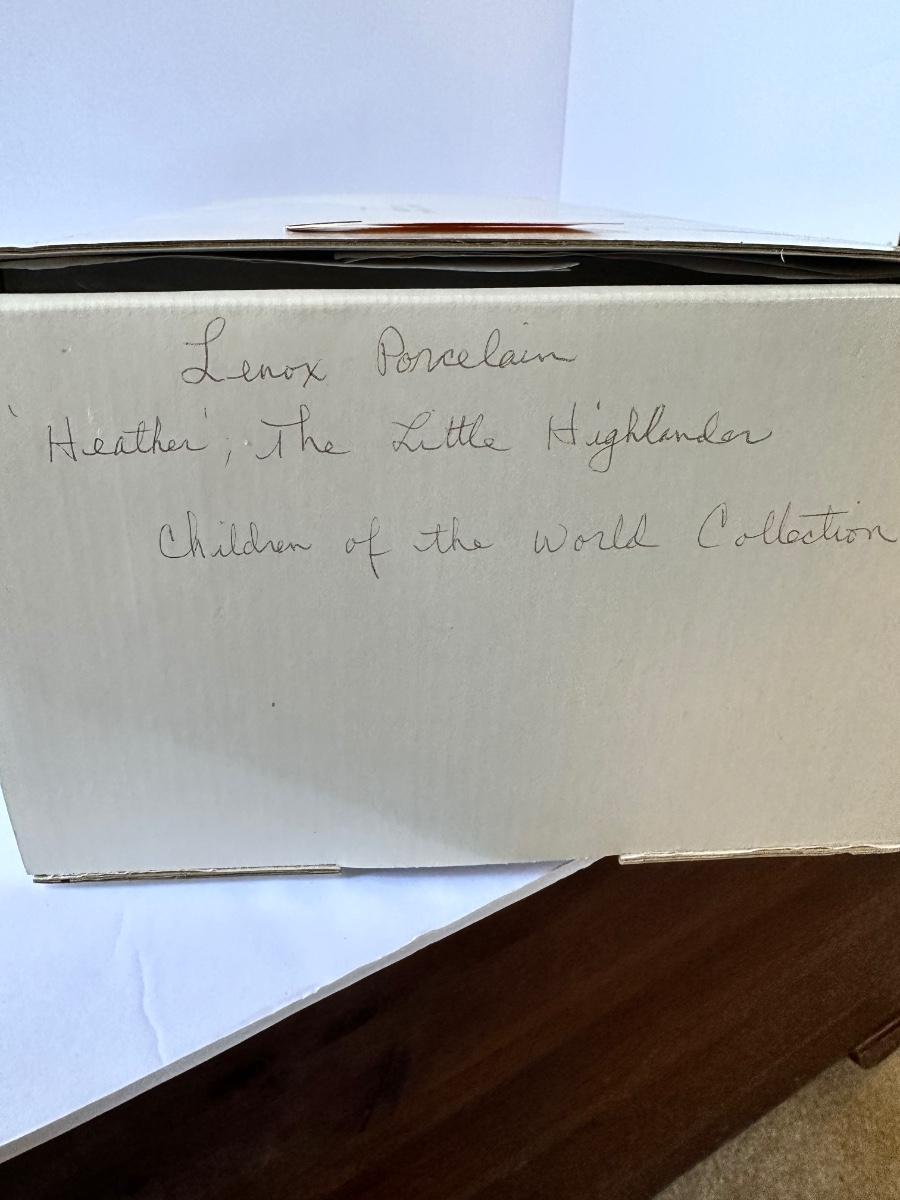 Lenox Porcelain
'Heather', The Little Highlander
Children of the World Collection